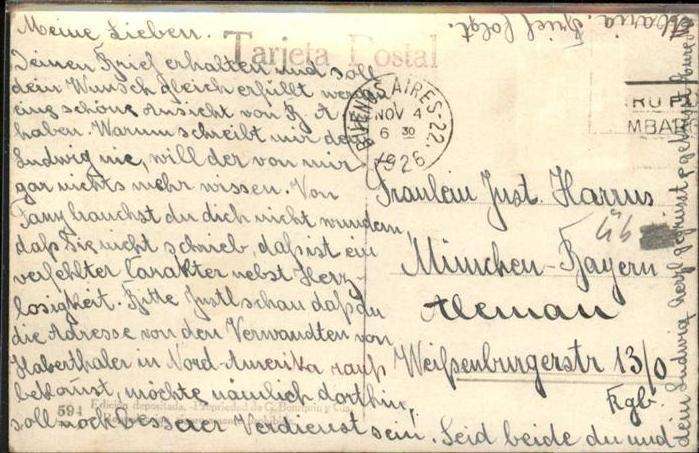 Tarjeta Postal
Meine Lieben.
Deinen Brief erhalten und soll
dein Wunsch gleich erfüllt werden
eine schöne Ansicht von B A
haben. Warum schreibt mir der
Ludwig nie, will der von mir
gar nichts mehr wissen. Von
Fany brauchst du dich nicht wundern,
daß Sie nicht schrieb, daß ist ein
verfehlter Carakter nebst Herz-
losigkeit. Bitte Justl schau daß du
die Adresse von den Verwandten von
Haberthaler in Nord-Amerika rauß
bekomst, möchte nämlich dorthin,
soll noch besserer Verdienst sein. Seid beide du und
dein Ludwig herzl gegrüßt
Brief folgt.
BUENOS AIRES-22.
NOV 4
6 30
1926
RU P
MBAR
Fräulein Just. Harrus
München-Bayern
Aleman
Weißenburgerstr 13/0
Rgb
594 Edición depositada. - Propiedad de